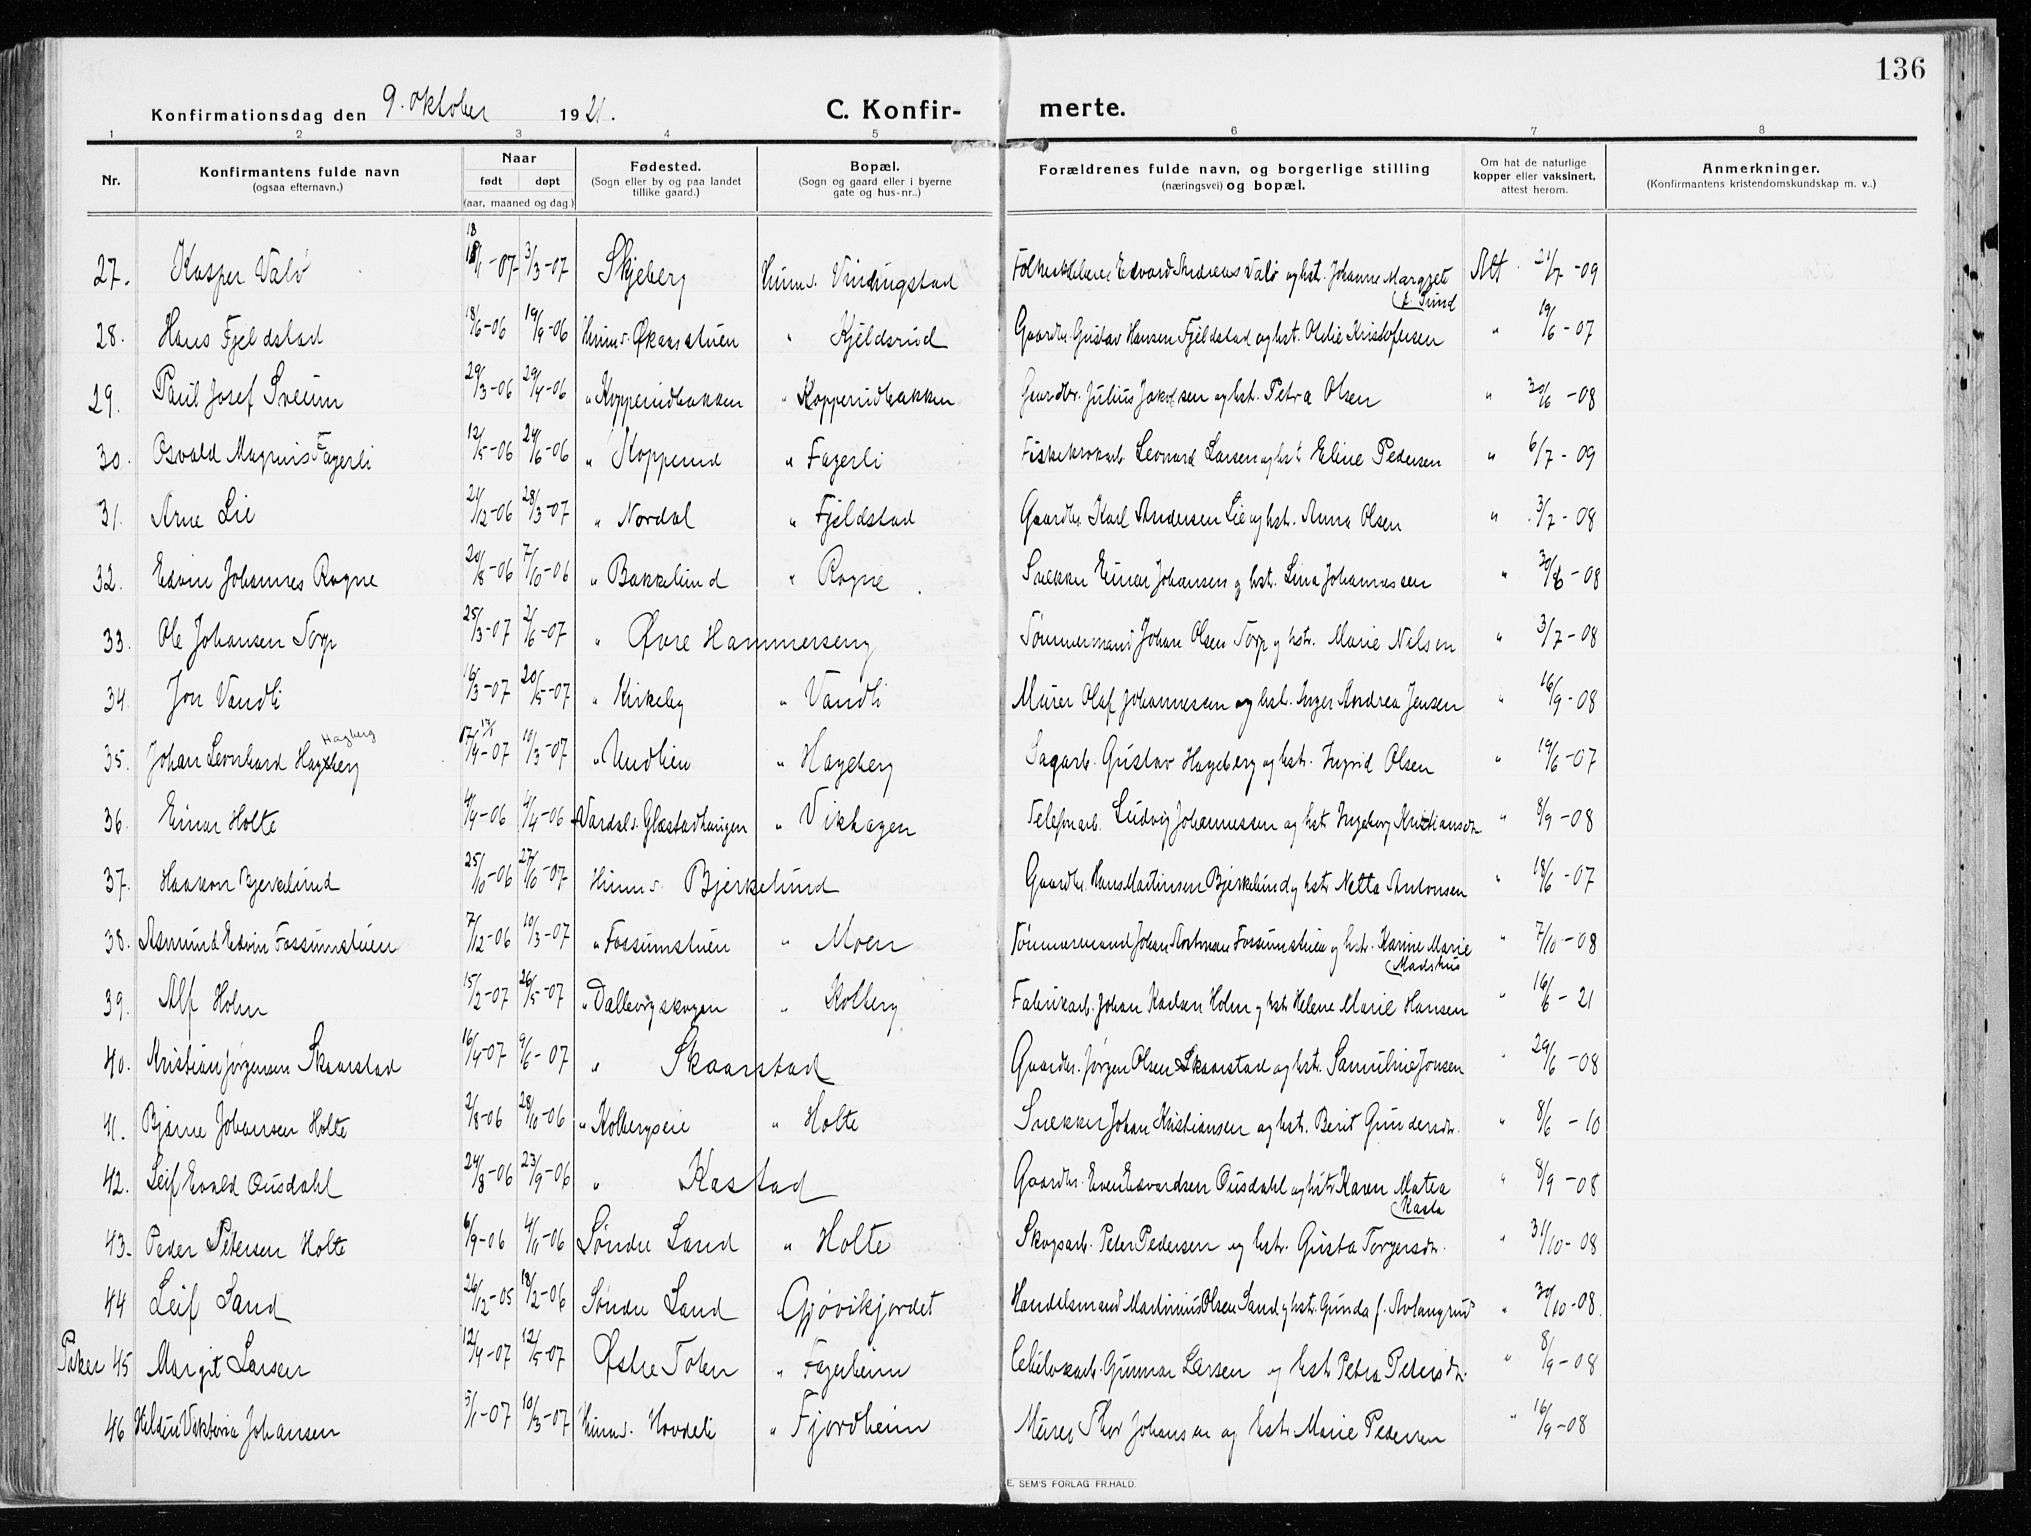 136
Konfirmationsdag den 9. oktober 1921. C. Konfirmerte.
1 2 3 4 5 6 7 8
Nr. Konfirmantens fulde navn (ogsaa efternavn.) Naar født døpt (aar, maaned og dag.) Fødested. (Sogn eller by og paa landet tillike gaard.) Bopæl. (Sogn og gaard eller i byerne gate og hus-nr..) Forældrenes fulde navn, og borgerlige stilling (næringsvei) og bopæl. Om hat de naturlige kopper eller vaksinert, attest herom. Anmerkninger. (Konfirmantens kristendomskundskap m. v..)
27. Kasper Valø 18/1-07 3/3-07 Skjeberg Hunns. Vindingstad Edvard Andreas Valø og hst. Johanne Margrete f. Lund Att 21/7-09
28. Hans Fjeldstad 18/6-06 19/9-06 Hunns. Økaasstuen " Kjeldsrud Gaardbr. Gustav Hansen Fjeldstad og hst. Oldie Kristofersen " 19/6-07
29. Paul Josef Sveum 29/3-06 29/4-06 " Kopperudbakken " Kopperudbakken Gaardbr. Julius Jakobsen og hst. Petra Olsen " 30/6-08
30. Osvald Magnus Fagerli 12/5-06 24/6-06 " Kopperud " Fagerli Fiskekrokarb. Leonard Larsen og hst. Eline Pedersen " 6/7-09
31. Arne Lie 21/12-06 28/3-07 " Nordal " Fjeldstad Gaardbr. Karl Andersen Lie og hst. Anna Olsen " 3/7-08
32. Edvin Johannes Rogne 20/8-06 7/10-06 " Bakkelund " Rogne Snekker Einar Johansen og hst. Lina Johannessen " 30/6-08
33. Ole Johansen Torp 25/3-07 2/6-07 " Øvre Hammerseng Tømmermand Johan Olsen Torp og hst. Marie Nilsen " 3/7-08
34. Jon Vandli 16/3-07 20/5-07 " Kirkeby " Vandli Murer Olaf Johannessen og hst. Inger Andrea Jensen " 16/9-08
35. Johan Leonhard Hageberg Hagberg 17/1-07 10/3-07 " Hageberg Sagarb. Gustav Hageberg og hst. Ingrid Olsen " 19/6-07
36. Einar Holte 4/4-06 Vardals. Glæstadhaugen " Vikhagen Telefonarb. Ludvig Johannessen og hst Ingeborg Kristiansdtr. " 8/9-08
37. Haakon Bjerkelund 25/10-06 Hunns. Bjerkelund Gaardbr. Hans Martinsen Bjerkelund og hst. Netta Antonsen " 18/6-07
38. Asmund Edvin Fossumstuen 7/12-06 10/3-07 " Fossumstuen " Moen Tømmermand Johan Fossumstuen og hst. Karine Marie Madshus " 7/10-08
39. Alf Holm 15/2-07 26/5-07 " Dallevigskogen " Kolberg Fabrikarb. Johan Karlsen Holm og hst Helene Marie Hansen " 16/6-21
40. Kristian Jørgensen Skaarstad 16/4-07 9/6-07 " Skaarstad Gaardbr. Jørgen Olsen Skaarstad og hst. Samuline Jonsen " 29/6-08
41. Bjarne Johansen Holte 2/8-06 28/10-06 " Kolbergseie " Holte Snekker Johan Kristiansen og hst. Berit Gundersdtr. " 8/6-10
42. Leif Evald Ousdahl 24/8-06 23/9-06 " Kastad Gaardbr. Even Edvardsen Ousdahl og hst. Karen Matea Kasta " 8/9-08
43. Peder Petersen Holte 6/9-06 4/11-06 Søndre Land " Holte Skogsarb. Peder Pedersen og hst. Gusta Torgersdtr. " 31/10-08
44 Leif Sand 26/12-05 18/2-06 Søndre Land Gjøvikjordet Handelsmand Martinius Olsen Sand og hst. Gunda f. " 30/10-08.
Piker 45 Margit Larsen 12/4-07 12/5-07 Østre Toten " Fagerheim Celulosearb. Gunnar Larsen og hst Petra Pedersdtr. " 8/9-08
46 Viktoria Johansen 5/1-07 10/3-07 Hunns. Hovdeli " Fjordheim Murer Thor Johansen og hst Marie Pedersen " 16/9-08
E. SEM'S FORLAG FR.HALD.